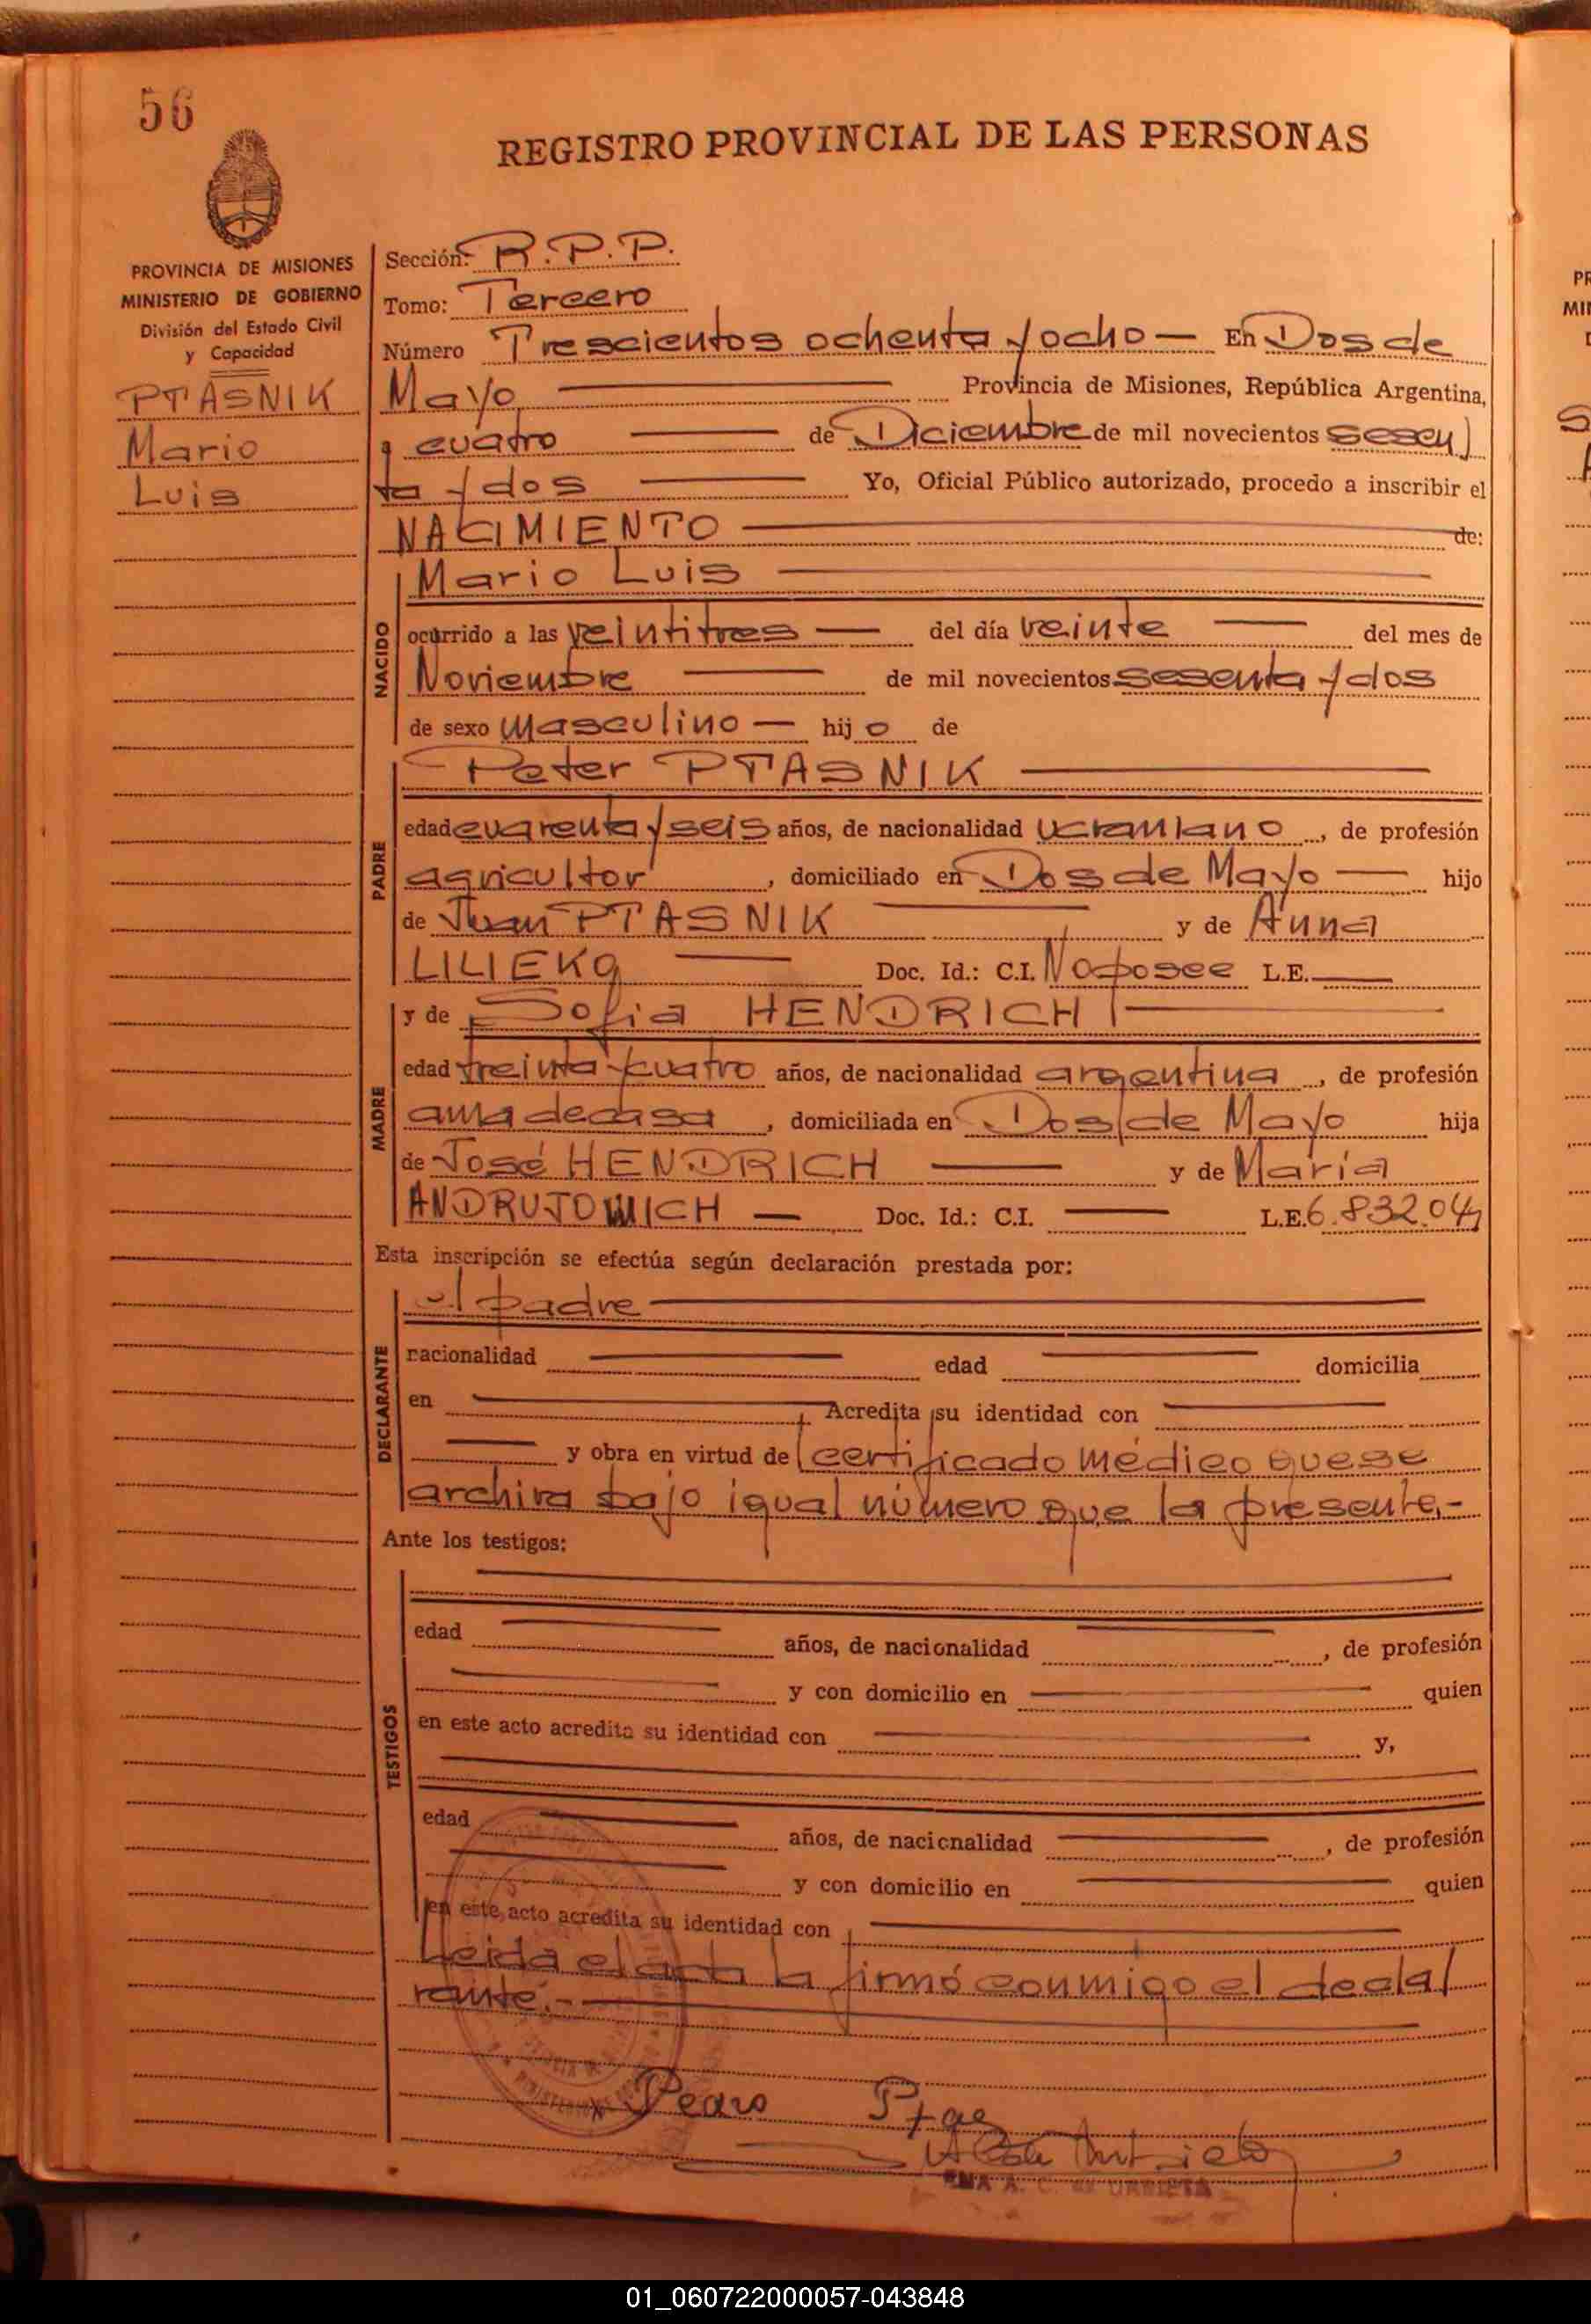 56
REGISTRO PROVINCIAL DE LAS PERSONAS
PROVINCIA DE MISIONES
MINISTERIO DE GOBIERNO
División del Estado Civil
y Capacidad
PTASNIK
Mario
Luis
Sección: R.P.P.
Tomo: Tercero
Número Trescientos ochenta y ocho — En Dos de
Mayo Provincia de Misiones, República Argentina,
a cuatro de Diciembre de mil novecientos sesen
ta y dos Yo, Oficial Público autorizado, procedo a inscribir el
NACIMIENTO de:
NACIDO
Mario Luis
ocurrido a las veintitres — del día veinte — del mes de
Noviembre de mil novecientos sesenta y dos
de sexo masculino — hijo de
PADRE
Peter PTASNIK
edad cuarenta y seis años, de nacionalidad ucraniano, de profesión
agricultor, domiciliado en Dos de Mayo — hijo
de Juan PTASNIK y de Anna
LILIEKO Doc. Id.: C.I. No posee L.E. —
MADRE
y de Sofia HENDRICH
edad treinta y cuatro años, de nacionalidad argentina, de profesión
ama de casa, domiciliada en Dos de Mayo hija
de José HENDRICH y de María
ANDRUJOWICH — Doc. Id.: C.I. — L.E. 6.832.04
Esta inscripción se efectúa según declaración prestada por:
DECLARANTE
el padre
nacionalidad edad domicilia
en Acredita su identidad con
y obra en virtud de certificado médico que se
archiva bajo igual número que la presente.-
Ante los testigos:
TESTIGOS
edad años, de nacionalidad , de profesión
y con domicilio en quien
en este acto acredita su identidad con y,
edad años, de nacionalidad , de profesión
y con domicilio en quien
en este acto acredita su identidad con
Leida el acta la firmó conmigo el decla
rante.-
Pedro Ptas
A. C. de URRIETA
01_060722000057-043848